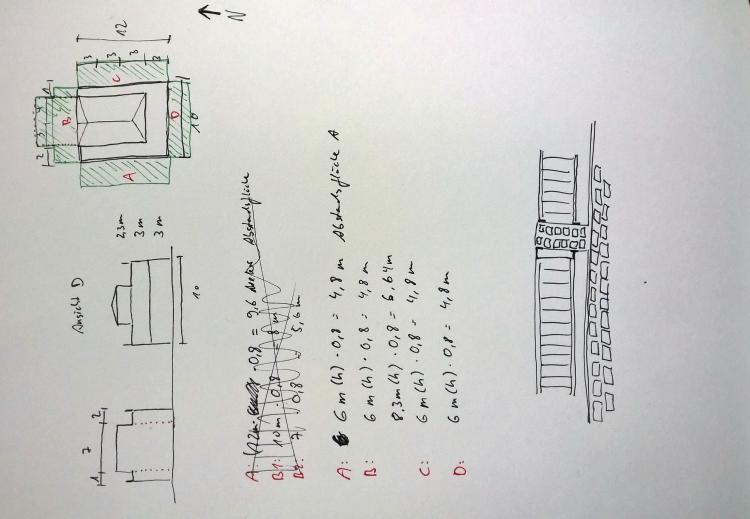 N
12
3 3 3 3
C
1
4
3
2
B
D
10
A
Ansicht D
2,3 m
3 m
3 m
10
1 7 2
A: 12m · 0,8 = 9,6 Abstandsfläche
B1: 10 m · 0,8 = 8 m
B2: 7, 0,8 5,6 m
A: 6 m (h) · 0,8 = 4,8 m Abstandsfläche A
B: 6 m (h) · 0,8 = 4,8 m
8,3 m (h) · 0,8 = 6,64 m
C: 6 m (h) · 0,8 = 4,8 m
D: 6 m (h) · 0,8 = 4,8 m